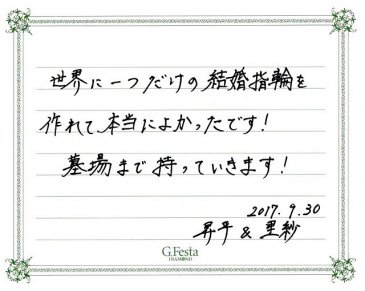 世界に一つだけの結婚指輪を
作れて、本当によかったです!
墓場まで持っていきます!
2017.9.30
昇平 & 里紗
G.Festa
DIAMOND